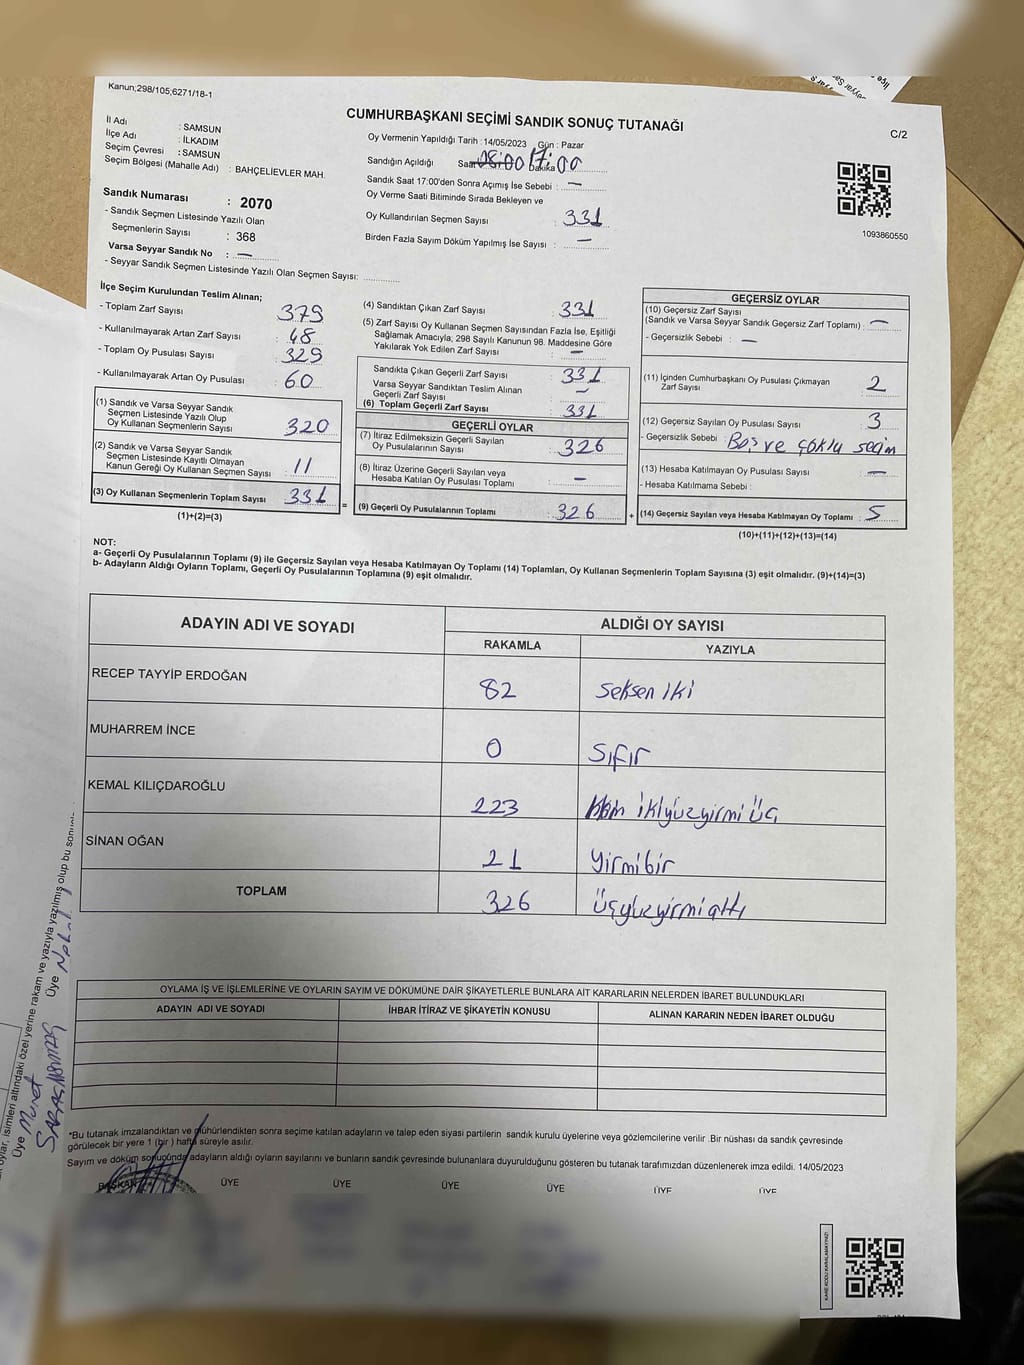 Kanun;298/105;6271/18-1
CUMHURBAŞKANI SEÇİMİ SANDIK SONUÇ TUTANAĞI
C/2
İl Adı : SAMSUN
İlçe Adı : İLKADIM
Seçim Çevresi : SAMSUN
Seçim Bölgesi (Mahalle Adı) : BAHÇELİEVLER MAH.
Sandık Numarası : 2070
- Sandık Seçmen Listesinde Yazılı Olan
Seçmenlerin Sayısı : 368
Varsa Seyyar Sandık No : —
- Seyyar Sandık Seçmen Listesinde Yazılı Olan Seçmen Sayısı:
Oy Vermenin Yapıldığı Tarih : 14/05/2023 Gün : Pazar
Sandığın Açıldığı Saat 08:00 17:00 Dakika
Sandık Saat 17:00'den Sonra Açımış İse Sebebi : —
Oy Verme Saati Bitiminde Sırada Bekleyen ve
Oy Kullandırılan Seçmen Sayısı : 331
Birden Fazla Sayım Döküm Yapılmış İse Sayısı : —
1093860550
İlçe Seçim Kurulundan Teslim Alınan;
- Toplam Zarf Sayısı : 379
- Kullanılmayarak Artan Zarf Sayısı : 48
- Toplam Oy Pusulası Sayısı : 329
- Kullanılmayarak Artan Oy Pusulası : 60
(1) Sandık ve Varsa Seyyar Sandık
Seçmen Listesinde Yazılı Olup
Oy Kullanan Seçmenlerin Sayısı : 320
(2) Sandık ve Varsa Seyyar Sandık
Seçmen Listesinde Kayıtlı Olmayan
Kanun Gereği Oy Kullanan Seçmen Sayısı : 11
(3) Oy Kullanan Seçmenlerin Toplam Sayısı : 331
(1)+(2)=(3)
(4) Sandıktan Çıkan Zarf Sayısı : 331
(5) Zarf Sayısı Oy Kullanan Seçmen Sayısından Fazla İse, Eşitliği
Sağlamak Amacıyla; 298 Sayılı Kanunun 98. Maddesine Göre
Yakılarak Yok Edilen Zarf Sayısı : —
Sandıkta Çıkan Geçerli Zarf Sayısı : 331
Varsa Seyyar Sandıktan Teslim Alınan
Geçerli Zarf Sayısı : —
(6) Toplam Geçerli Zarf Sayısı : 331
GEÇERLİ OYLAR
(7) İtiraz Edilmeksizin Geçerli Sayılan
Oy Pusulalarının Sayısı : 326
(8) İtiraz Üzerine Geçerli Sayılan veya
Hesaba Katılan Oy Pusulası Toplamı : —
= (9) Geçerli Oy Pusulalarının Toplamı : 326
GEÇERSİZ OYLAR
(10) Geçersiz Zarf Sayısı
(Sandık ve Varsa Seyyar Sandık Geçersiz Zarf Toplamı) : —
- Geçersizlik Sebebi : —
(11) İçinden Cumhurbaşkanı Oy Pusulası Çıkmayan
Zarf Sayısı : 2
(12) Geçersiz Sayılan Oy Pusulası Sayısı : 3
- Geçersizlik Sebebi : Boş ve çoklu seçim
(13) Hesaba Katılmayan Oy Pusulası Sayısı : —
- Hesaba Katılmama Sebebi :
+ (14) Geçersiz Sayılan veya Hesaba Katılmayan Oy Toplamı : 5
(10)+(11)+(12)+(13)=(14)
NOT:
a- Geçerli Oy Pusulalarının Toplamı (9) ile Geçersiz Sayılan veya Hesaba Katılmayan Oy Toplamı (14) Toplamları, Oy Kullanan Seçmenlerin Toplam Sayısına (3) eşit olmalıdır. (9)+(14)=(3)
b- Adayların Aldığı Oyların Toplamı, Geçerli Oy Pusulalarının Toplamına (9) eşit olmalıdır.
ADAYIN ADI VE SOYADI ALDIĞI OY SAYISI
RAKAMLA YAZIYLA
RECEP TAYYİP ERDOĞAN 82 Seksen iki
MUHARREM İNCE 0 Sıfır
KEMAL KILIÇDAROĞLU 223 ikiyüzyirmi üç
SİNAN OĞAN 21 Yirmibir
TOPLAM 326 Üçyüzyirmialtı
OYLAMA İŞ VE İŞLEMLERİNE VE OYLARIN SAYIM VE DÖKÜMÜNE DAİR ŞİKAYETLERLE BUNLARA AİT KARARLARIN NELERDEN İBARET BULUNDUKLARI
ADAYIN ADI VE SOYADI İHBAR İTİRAZ VE ŞİKAYETİN KONUSU ALINAN KARARIN NEDEN İBARET OLDUĞU
*Bu tutanak imzalandıktan ve mühürlendikten sonra seçime katılan adayların ve talep eden siyasi partilerin sandık kurulu üyelerine veya gözlemcilerine verilir .Bir nüshası da sandık çevresinde
görülecek bir yere 1 (bir ) hafta süreyle asılır.
Sayım ve döküm sonucunda adayların aldığı oyların sayılarını ve bunların sandık çevresinde bulunanlara duyurulduğunu gösteren bu tutanak tarafımızdan düzenlenerek imza edildi. 14/05/2023
BAŞKAN ÜYE ÜYE ÜYE ÜYE ÜYE ÜYE
oylar, isimleri altındaki özel yerine rakam ve yazıyla yazılmış olup bu
Üye Murat
Üye